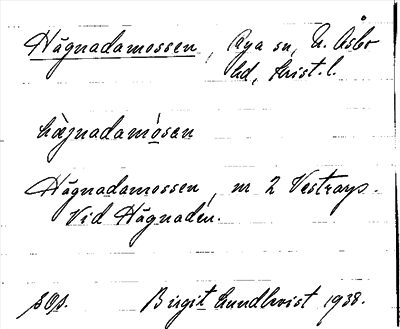 Hägnadamossen, Rya sn, N. Åsbo
hd, Krist. l.
hægnadamåsan
Hägnadamossen, nr 2 Vestraryp.
Vid Hägnaden.
Birgit Lundkvist 1938.